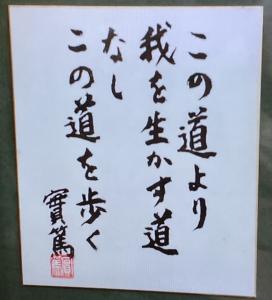 この道より
我を生かす道
なし
この道を歩く
實篤